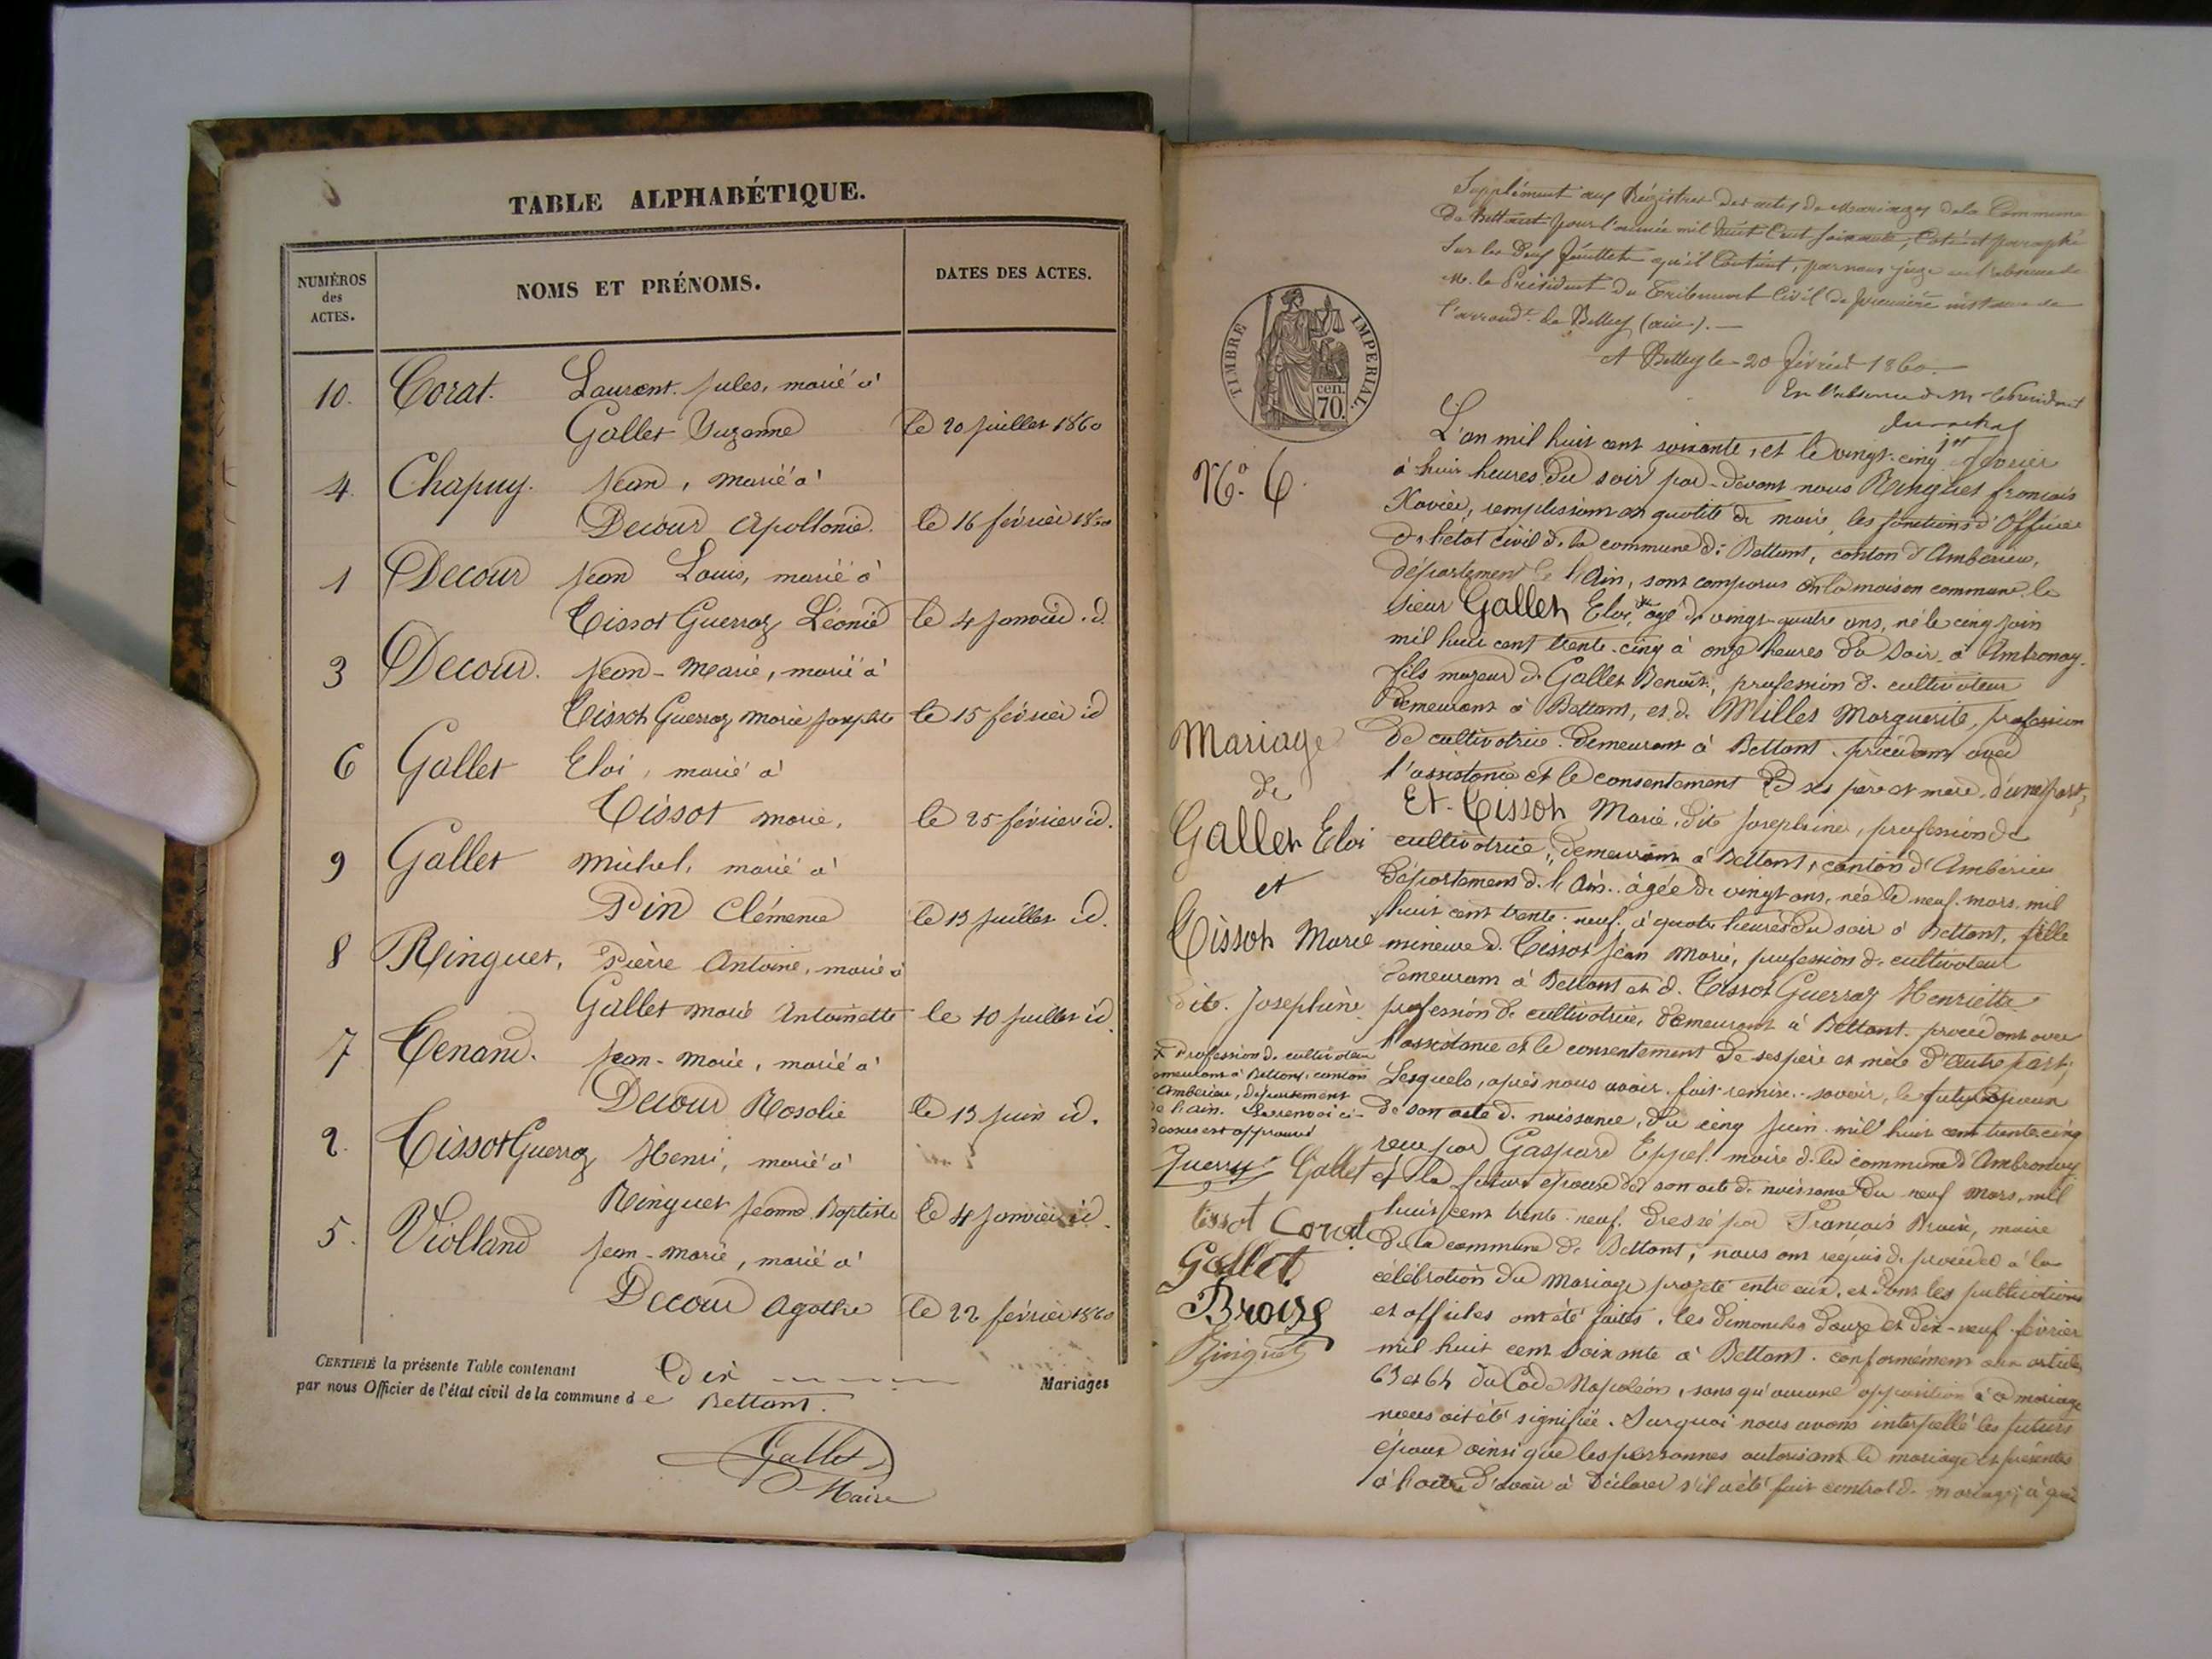 TABLE ALPHABÉTIQUE.
NUMÉROS
des
ACTES.
NOMS ET PRÉNOMS.
DATES DES ACTES.
10. Corat. Laurent Jules, marié à
Gallet Suzanne le 20 juillet 1860
4. Chapuy. Jean, marié à
Decour Apollonie. le 16 février 1860
1 Decour Jean Louis, marié à
Tissot Guerraz Léonie le 4 janvier id.
3 Decour. Jean-Marie, marié à
Tissot Guerraz Marie Josephte le 15 février id
6 Gallet Eloi, marié à
Tissot Marie, le 25 février id.
9 Gallet Michel, marié à
Pin Clémence le 13 juillet id.
8 Ringuet, Pierre Antoine, marié à
Gallet Marie Antoinette le 10 juillet id.
7 Tenand. Jean-Marie, marié à
Decour Rosalie le 13 juin id.
2. Tissot Guerraz Henri, marié à
Ringuet Jeanne Baptiste le 4 janvier id.
5. Violland Jean-Marie, marié à
Decour Agathe le 22 février 1860
CERTIFIÉ la présente Table contenant Dix Mariages
par nous Officier de l'état civil de la commune de Bettant.
Gallet
Maire
Supplément aux Régistres des actes de Mariages de la Commune
de Bettant pour l'année mil huit cent soixante, Coté et paraphé
Sur les deux feuillets qu'il Contient, par nous juge en l'absence de
M. le Président du Tribunal Civil de première instance de
l'arrondt. de Belley (ain). —
A Belley le 20 Février 1860. —
En l'absence de M. le Président
TIMBRE IMPERIAL.
cen.
70.
No. 6.
L'an mil huit cent soixante, et le vingt-cinq février
à huit heures du soir par-devant nous Ringuet françois
Xavier, remplissant en qualité de maire, les fonctions d'Officier
de l'état civil de la commune de Bettant, canton d'Amberieu,
département de l'Ain, sont comparus en la maison commune, le
sieur Gallet Eloi, agé de vingt-quatre ans, né le cinq juin
mil huit cent trente-cinq à onze heures du soir à Ambronay.
fils majeur de Gallet Benoît, profession de cultivateur
demeurant à Bettant, et de Millet Marguerite, profession
de cultivatrice demeurant à Bettant procédant avec
l'assistance et le consentement de ses père et mère d'une part,
Et Tissot Marie, dite Josephine, profession de
cultivatrice, demeurant à Bettant, canton d'Amberieu
département de l'Ain. âgée de vingt ans, née le neuf mars mil
huit cent trente-neuf à quatre heures du soir à Bettant, fille
mineure de Tissot Jean Marie, profession de cultivateur
demeurant à Bettant et de Tissot Guerraz Henriette
profession de cultivatrice, demeurant à Bettant. procédant avec
l'assistance et le consentement de ses père et mère d'autre part;
Lesquels, après nous avoir fait remise, savoir, le futur époux
de son acte de naissance, du cinq juin mil huit cent trente cinq
reçu par Gaspard Eppel. maire de la commune d'Ambronay
et la future épouse de son acte de naissance du neuf mars, mil
huit cent trente-neuf. dressé par François maire
de la commune de Bettant, nous ont requis de procéder à la
célébration du mariage projeté entre eux, et dont les publications
et affiches ont été faites, les dimanches douze et dix-neuf février
mil huit cent soixante à Bettant. conformément aux articles
63 et 64 du Code Napoléon, sans qu'aucune opposition à ce mariage
nous ait été signifiée. Surquoi nous avons interpellé les futurs
époux ainsi que les personnes autorisant le mariage et présentes
à l'acte d'avoir à déclarer s'il a été fait contrat de mariage; à quoi
Mariage
de
Gallet Eloi
et
Tissot Marie
dite Josephine
x profession de cultivateur
demeurant à Bettant, canton
Amberieu, département
de l'ain. Le renvoi ci-
dessus est approuvé
Gallet
Tissot Corat
Gallet
Ringuet